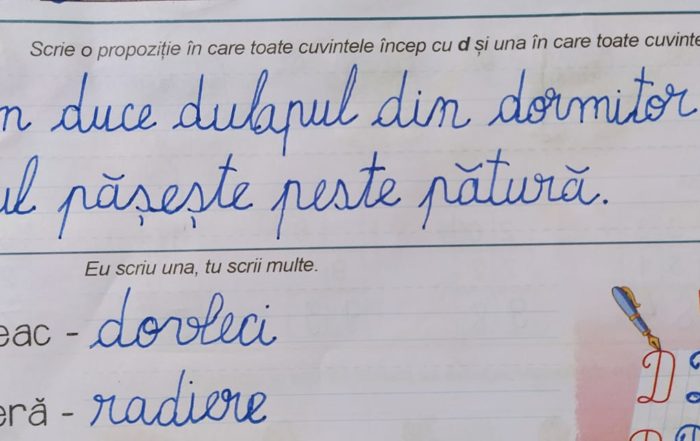 Scrie o propoziție în care toate cuvintele încep cu d și una în care toate cuvinte
n duce dulapul din dormitor
ul pășește peste pătură.
Eu scriu una, tu scrii multe.
eac - dovleci
eră - radiere
D